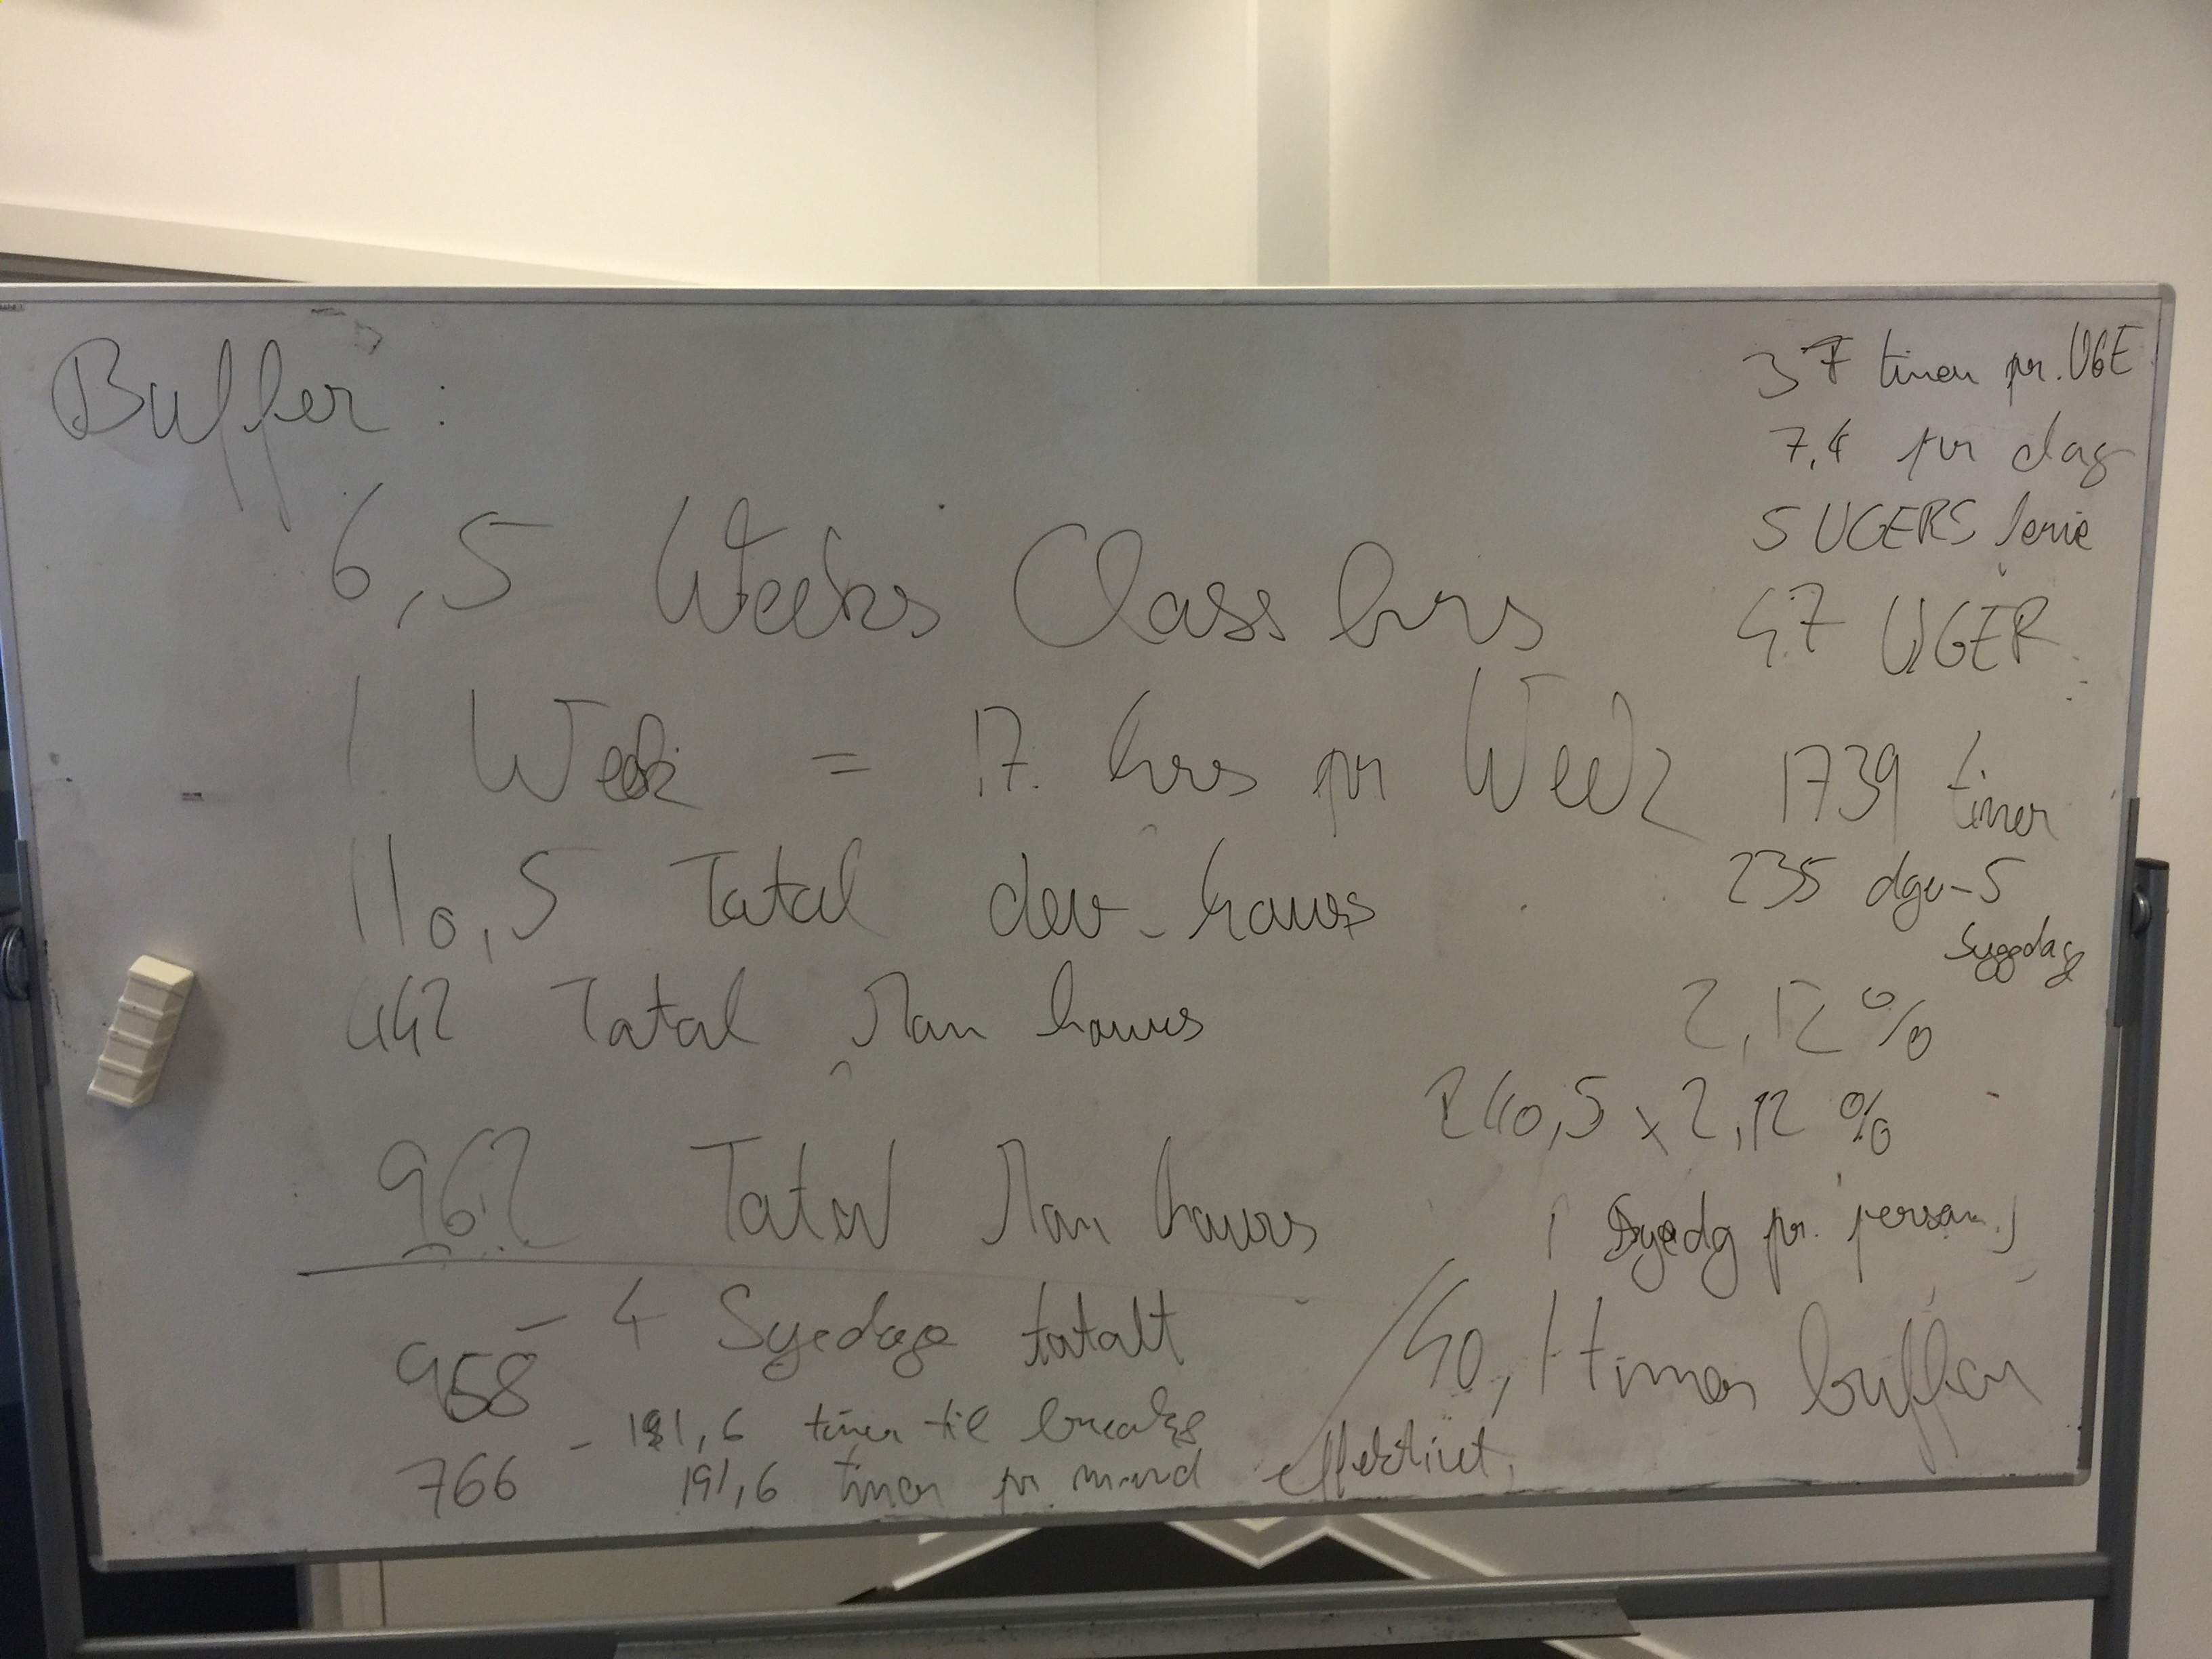 Buffer:
6,5 Weeks Class hrs
1 Week = 17 hrs pr Week
110,5 Total dev-hours
442 Total Man hours
962 Total Man hours
- 4 Sygedage totalt
958
- 191,6 timer til breaks
766 191,6 timer pr. mand effektivt
37 timer pr. UGE
7,4 pr dag
5 UGERS ferie
47 UGER
1739 timer
235 dage-5
Sygedage
2,12%
240,5 x 2,12 %
1 Sygedg pr. person
40,1 timer buffer